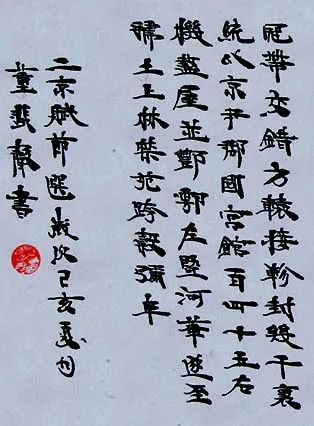 冠帶交錯方轅接軫封幾千裏
統以京尹郡國宮館百四十五右
機盩屋並酆鄠左暨河華遂至
虢土上林禁苑跨穀彌阜
二京賦節選歲次己亥夏月
董書